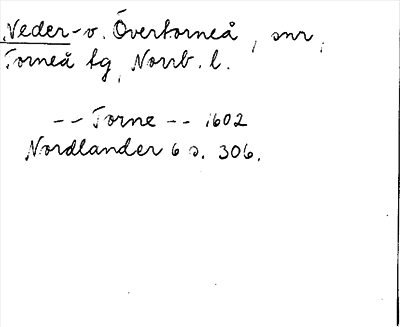 Neder-o. Övertorneå, snr,
Torneå tg, Norrb. l.
-- Torne -- 1602
Nordlander 6 s. 306.